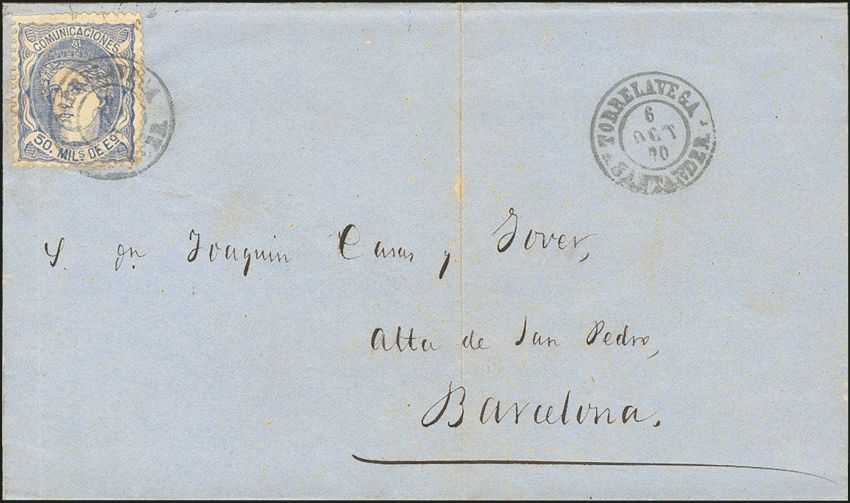 COMUNICACIONES
50. MILS. DE EO
TORRELAVEGA
6
OCT
70
SANTANDER
S. Dn. Joaquin Casas y Jover,
Alta de San Pedro,
Barcelona.